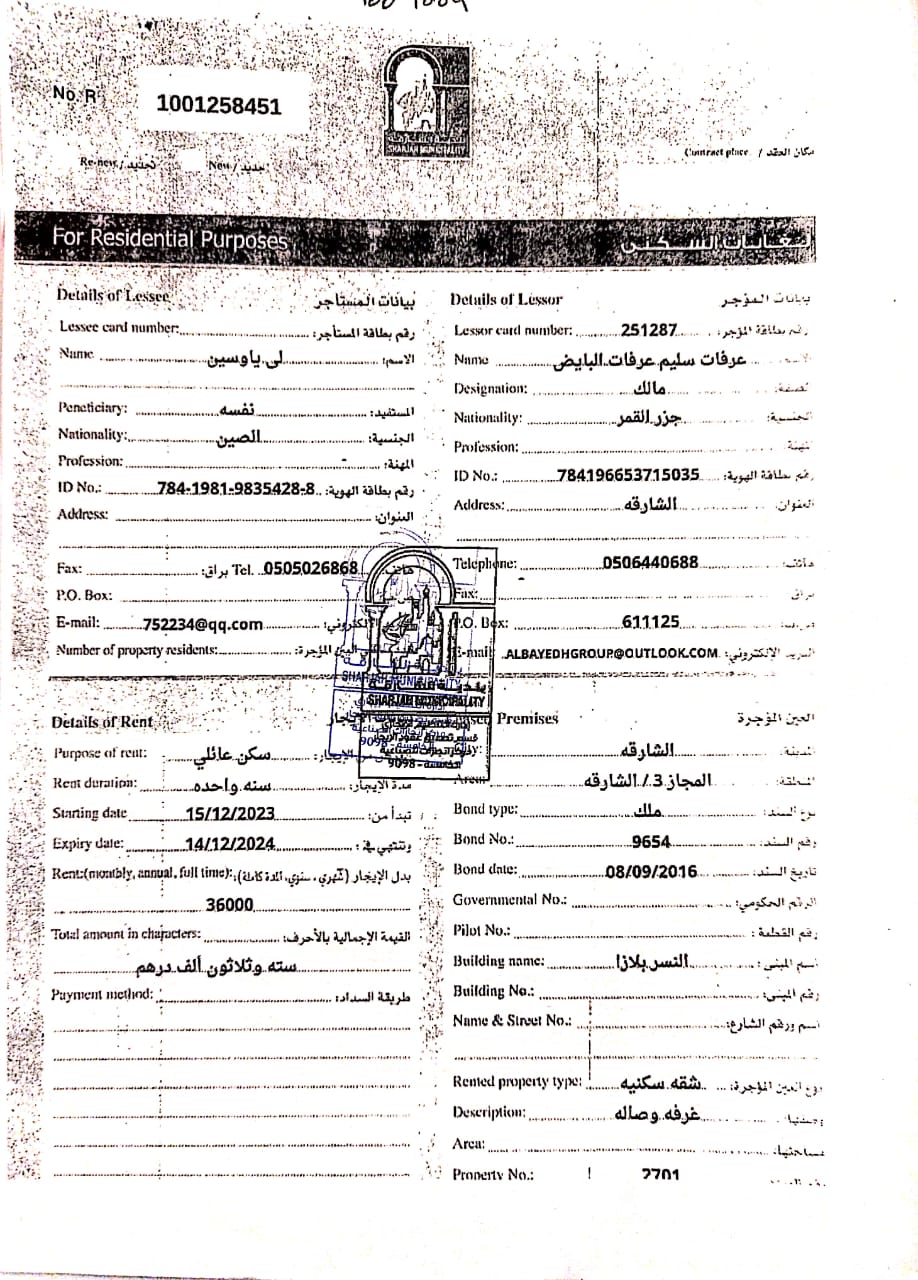 No R 1001258451
SHARJAH MUNICIPALITY
Re-new / تجديد New / جديد
Contract place / مكان العقد
For Residential Purposes
Details of Lessee بيانات المستأجر
Lessee card number: رقم بطاقة المستأجر:
Name لى ياوسين الاسم:
Peneticiary: نفسه المستفيد:
Nationality: الصين الجنسية:
Profession: - المهنة:
ID No.: 784-1981-9835428-8 رقم بطاقة الهوية:
Address: العنوان:
Fax: براق: Tel. 0505026868 هاتف
P.O. Box:
E-mail: 752234@qq.com
Number of property residents:
Details of Lessor بيانات المؤجر
Lessor card number: 251287 رقم بطاقة المؤجر:
Name عرفات سليم عرفات البايض
Designation: مالك
Nationality: جزر القمر الجنسية:
Profession:
ID No.: 784196653715035 رقم بطاقة الهوية:
Address: الشارقه العنوان:
Telephone: 0506440688
Fax:
P.O. Box: 611125
E-mail ALBAYEDHGROUP@OUTLOOK.COM البريد الإلكتروني:
SHARJAH MUNICIPALITY
SHARJAH MUNICIPALITY
الخامسة - 9098
Details of Rent
Purpose of rent: سكن عائلي
Rent duration: سنه واحده مدة الإيجار:
Starting date 15/12/2023 تبدأ من:
Expiry date: 14/12/2024 وتنتهي في:
Rent:(monthly, annual, full time): بدل الإيجار (شهري، سنوي، المدة كاملة):
36000
Total amount in characters: القيمة الإجمالية بالأحرف:
سته وثلاثون ألف درهم
Payment method: طريقة السداد:
Premises العين المؤجرة
الشارقه المدينة:
Area: المجاز 3 / الشارقه
Bond type: ملك نوع السند:
Bond No.: 9654 رقم السند:
Bond date: 08/09/2016 تاريخ السند:
Governmental No.: الرقم الحكومي:
Pilot No.: رقم القطعة:
Building name: النسر بلازا اسم المبنى:
Building No.: رقم المبنى:
Name & Street No.: اسم ورقم الشارع:
Rented property type: شقه سكنيه نوع العين المؤجرة:
Description: غرفه وصاله
Area:
Property No.: 2701